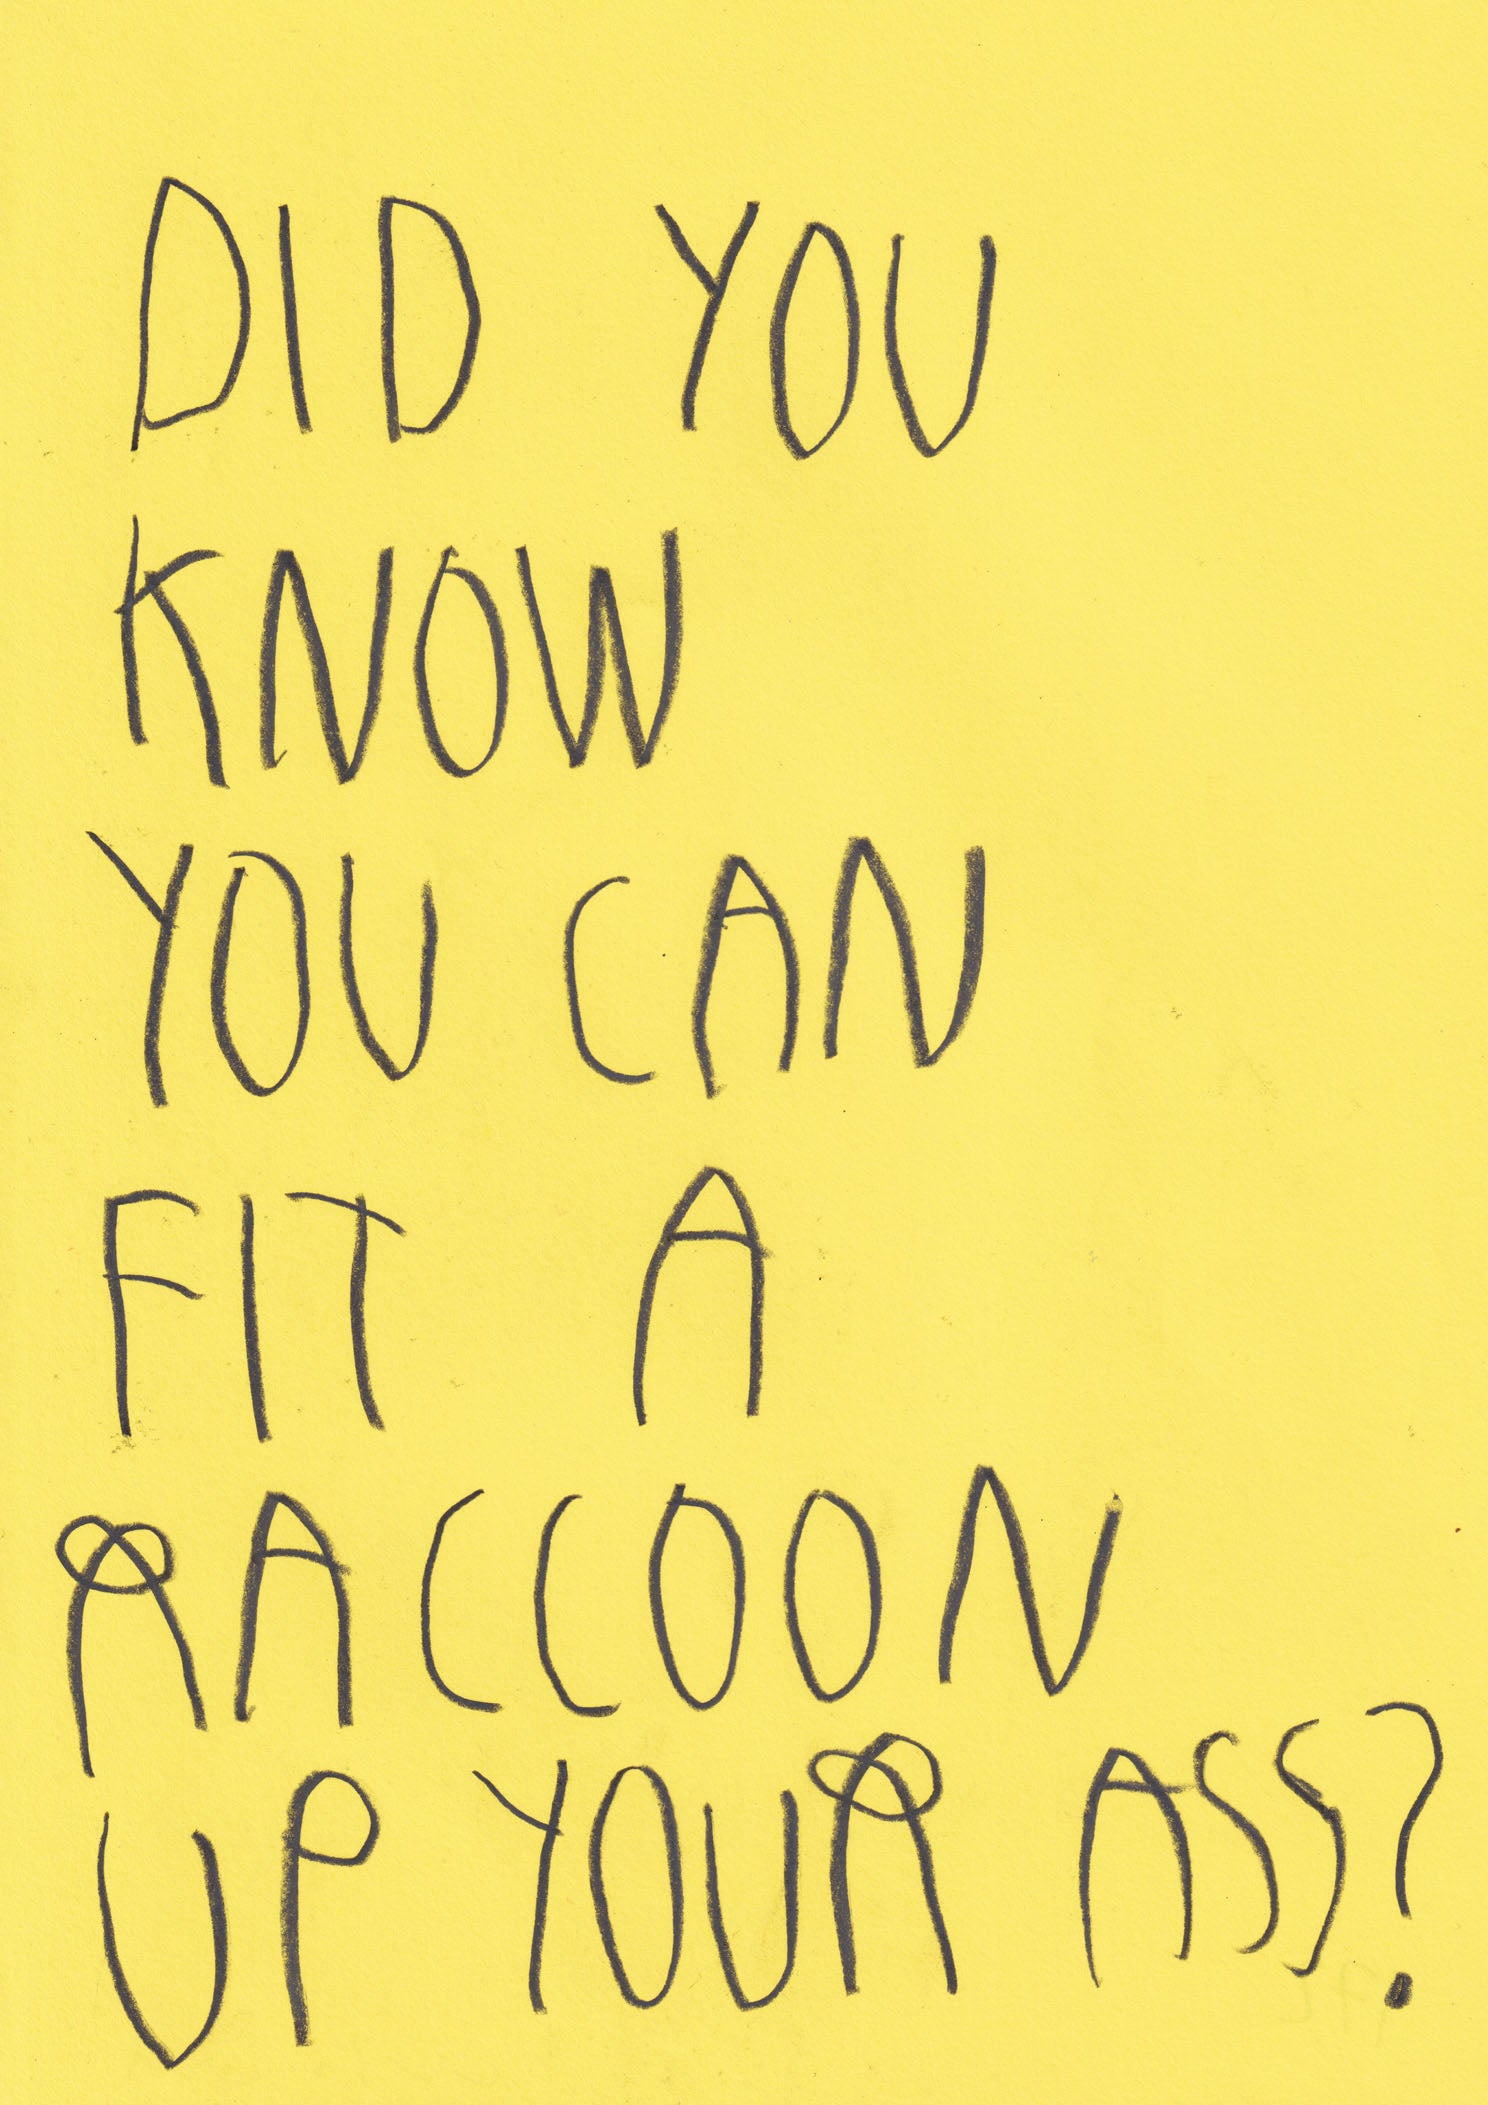 DID YOU
KNOW
YOU CAN
FIT A
RACCOON
UP YOUR ASS?